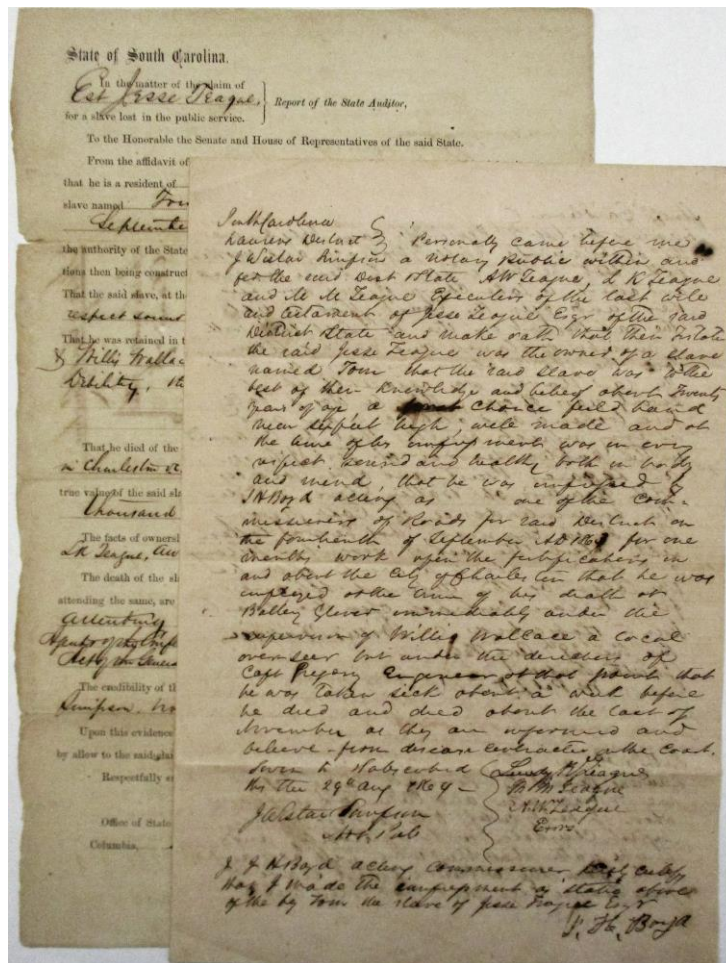 State of South Carolina.
In the matter of the claim of
Est Jesse Teague.
Report of the State Auditor,
for a slave lost in the public service.
To the Honorable the Senate and House of Representatives of the said State.
From the affidavit of
that he is a resident of
slave named
Septembe
the authority of the State
tions then being construct
That the said slave, at th
respect sound
That he was retained in t
& Willis Wallac
Debility,
That he died of the
in Charleston
true value of the said sla
Thousand
The facts of ownersh
LK Teague,
The death of the sl
attending the same, are
attending
Act of the General
The credibility of th
Simpson,
Upon this evidence
by allow to the said clai
Respectfully
Office of State
Columbia,
South Carolina
Laurens District Personally came before me
J Wistar Simpson a Notary Public within and
for the said Dist & State AW Teague, L K Teague
and M M Teague Executors of the last will
and testament of Jesse Teague Esqr of the said
District & State and make oath that their Testator
the said Jesse Teague was the owner of a slave
named Tom that the said slave was to the
best of their knowledge and belief about Twenty
years of age, a choice field hand
near six feet high, well made and at
the time of his impressment was in every
respect sound and healthy both in body
and mind, that he was impressed by
JHBoyd acting as one of the Com-
missioners of Roads for said District on
the fourteenth of September AD 186 for one
months work upon the fortifications in
and about the City of Charleston that he was
employed at the time of his death at
Battery Glover immediately under the
supervision of Willis Wallace a local
overseer but under the direction of
Capt Engineer at that point that
he was taken sick about a week before
he died and died about the last of
November as they are informed and
believe from disease contracted on the coast.
Sworn to & subscribed
this the 29th Aug 1864
J Wistar Simpson
Not Pub
L K Teague
M M Teague
A.W. Teague
Exors
I J H Boyd acting commissioner certify
that I made the impressment as stated above
of the boy Tom the slave of Jesse Teague Esqr
J. H. Boyd